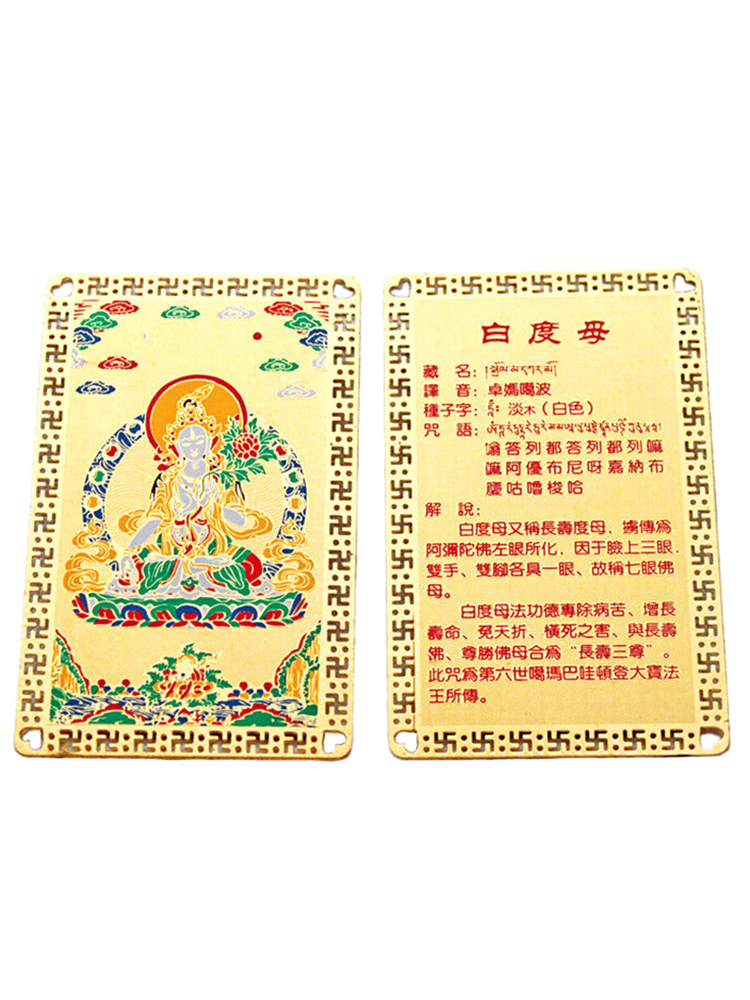 白度母
藏 名：སྒྲོལ་མ་དཀར་མོ།
譯 音：卓媽噶波
種子字：淡木（白色）
咒 語：
嗡答列都答列都列嘛
嘛阿優布尼呀嘉納布
咕嚕梭哈
解 說：
白度母又稱長壽度母，據傳爲
阿彌陀佛左眼所化，因于臉上三眼，
雙手、雙腳各具一眼、故稱七眼佛
母。
白度母法功德專除病苦、增長
壽命、免夭折、橫死之害、與長壽
佛、尊勝佛母合爲“長壽三尊”。
此咒爲第六世噶瑪巴哇頓登大寶法
王所傳。